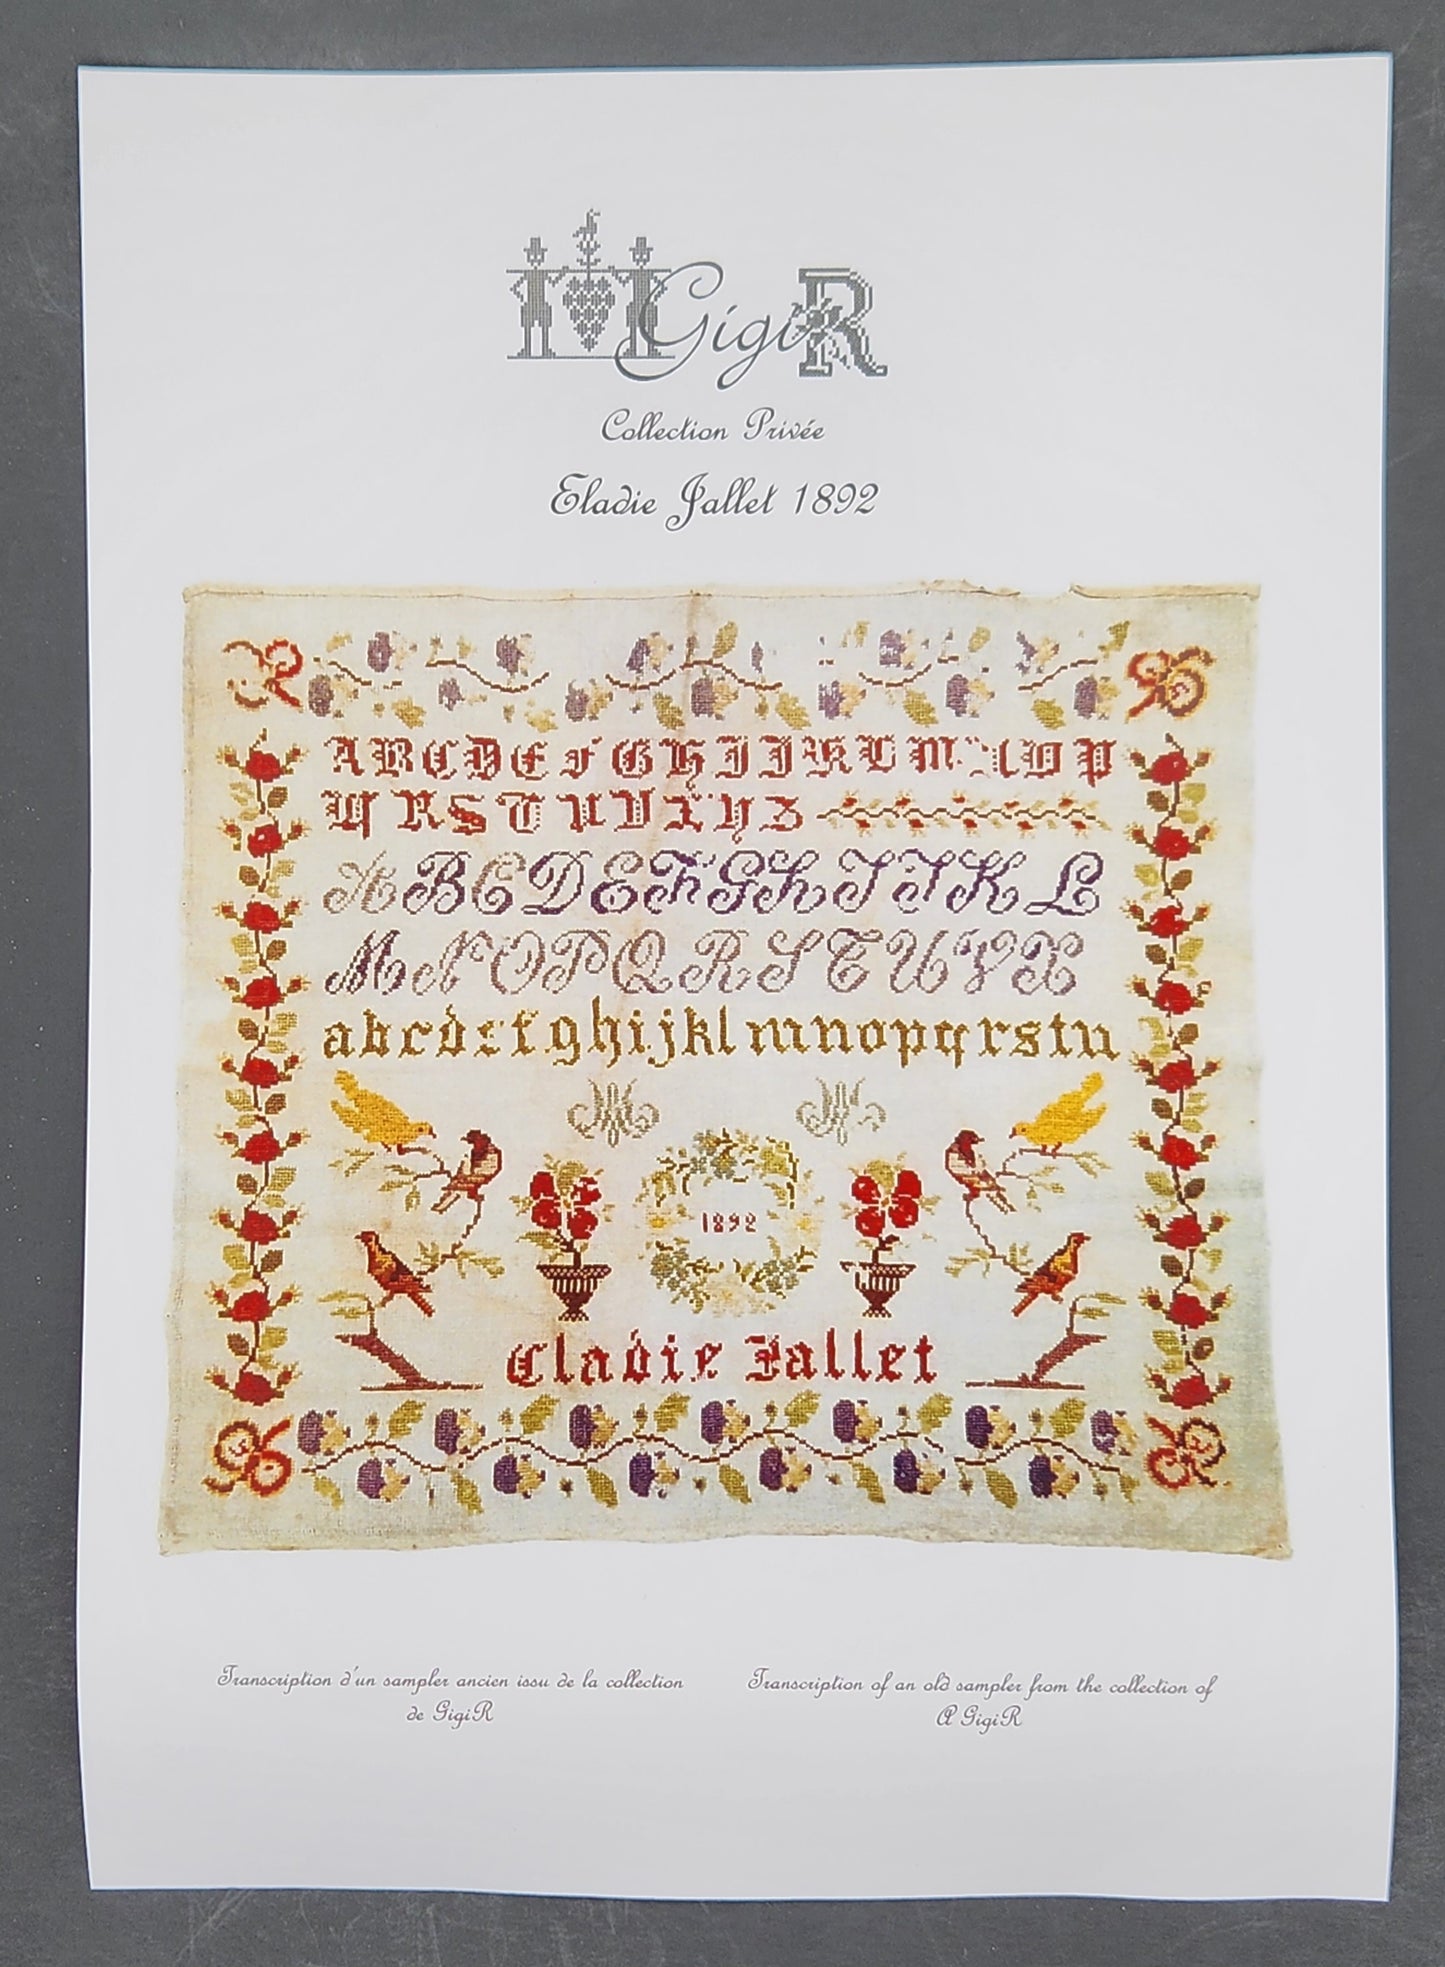 GigiR
Collection Privée
Eladie Jallet 1892
A B C D E F G H I J K L M N O P
Q R S T U V X Y Z
A B C D E F G H I J K L
M N O P Q R S T U V X
a b c d e f g h i j k l m n o p q r s t u
1892
Eladie Jallet
Transcription d'un sampler ancien issu de la collection
de GigiR
Transcription of an old sampler from the collection of
GigiR